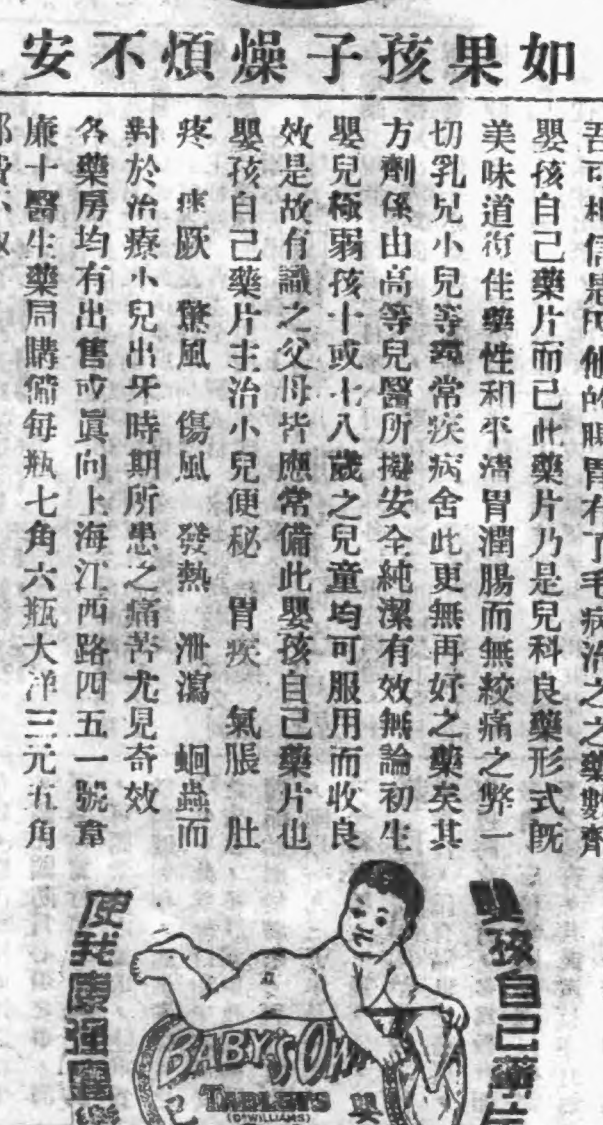 如果孩子燥煩不安
吾可相信是因他的腸胃有了毛病治之之藥數劑
嬰孩自己藥片而已此藥片乃是兒科良藥形式旣
美味道衍佳藥性和平淸胃潤腸而無絞痛之弊一
切乳兒小兒等尋常疾病舍此更無再好之藥矣其
方劑係由高等兒醫所擬安全純潔有效無論初生
嬰兒極弱孩十或十八歲之兒童均可服用而收良
效是故有識之父母皆應常備此嬰孩自己藥片也
嬰孩自己藥片主治小兒便秘 胃疾 氣脹 肚
疼 痰厥 驚風 傷風 發熱 泄瀉 蛔蟲而
對於治療小兒出牙時期所患之痛苦尤見奇效
各藥房均有出售或眞向上海江西路四五一號韋
廉十醫生藥局購備每瓶七角六瓶大洋三元五角
郵費
嬰孩自己藥片
使我康強
BABY'S OWN
TABLETS
(DR WILLIAMS)
己